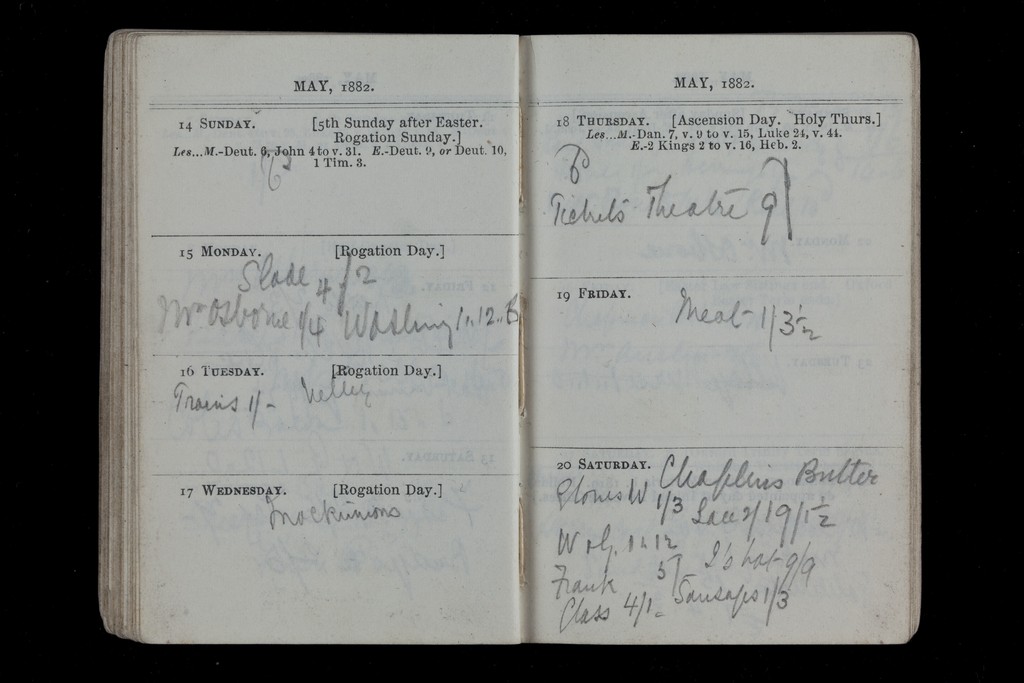 MAY, 1882.
14 SUNDAY. [5th Sunday after Easter.
Rogation Sunday.]
Les...M.-Deut. 6, John 4 to v. 31. E.-Deut. 9, or Deut. 10,
1 Tim. 3.
15 MONDAY. [Rogation Day.]
Slade 4/2
Mrs Osborne 1/4 Washing 1..12..
16 TUESDAY. [Rogation Day.]
Trains 1/- Nelley
17 WEDNESDAY. [Rogation Day.]
MAY, 1882.
18 THURSDAY. [Ascension Day. Holy Thurs.]
Les...M.-Dan. 7, v. 9 to v. 15, Luke 24, v. 44.
E.-2 Kings 2 to v. 16, Heb. 2.
Tickets Theatre 9
19 FRIDAY.
Meat 1/3½
20 SATURDAY. Chaplins Butter
Gloves W 1/3 Lace 2/
W 1..12 I's hat 9/9
Frank
Class 4/1 Sausages 1/3